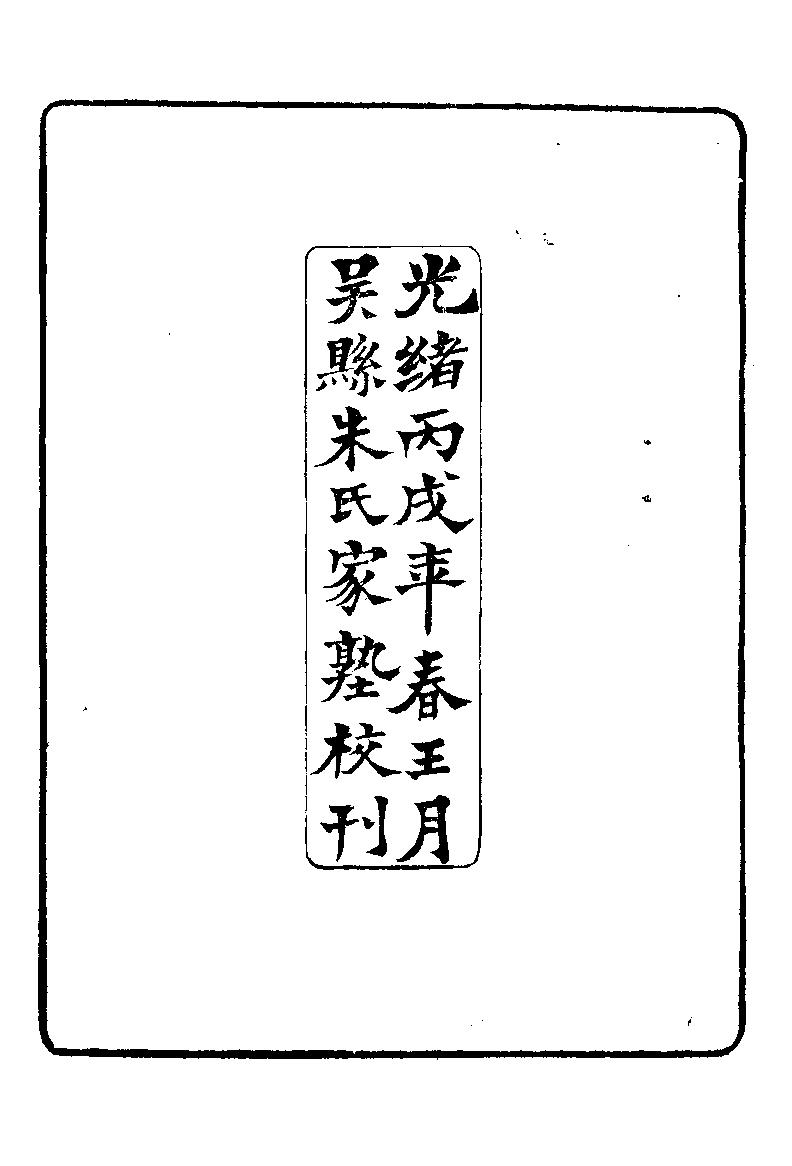 光緒丙戌年春王月
吴縣朱氏家塾校刊